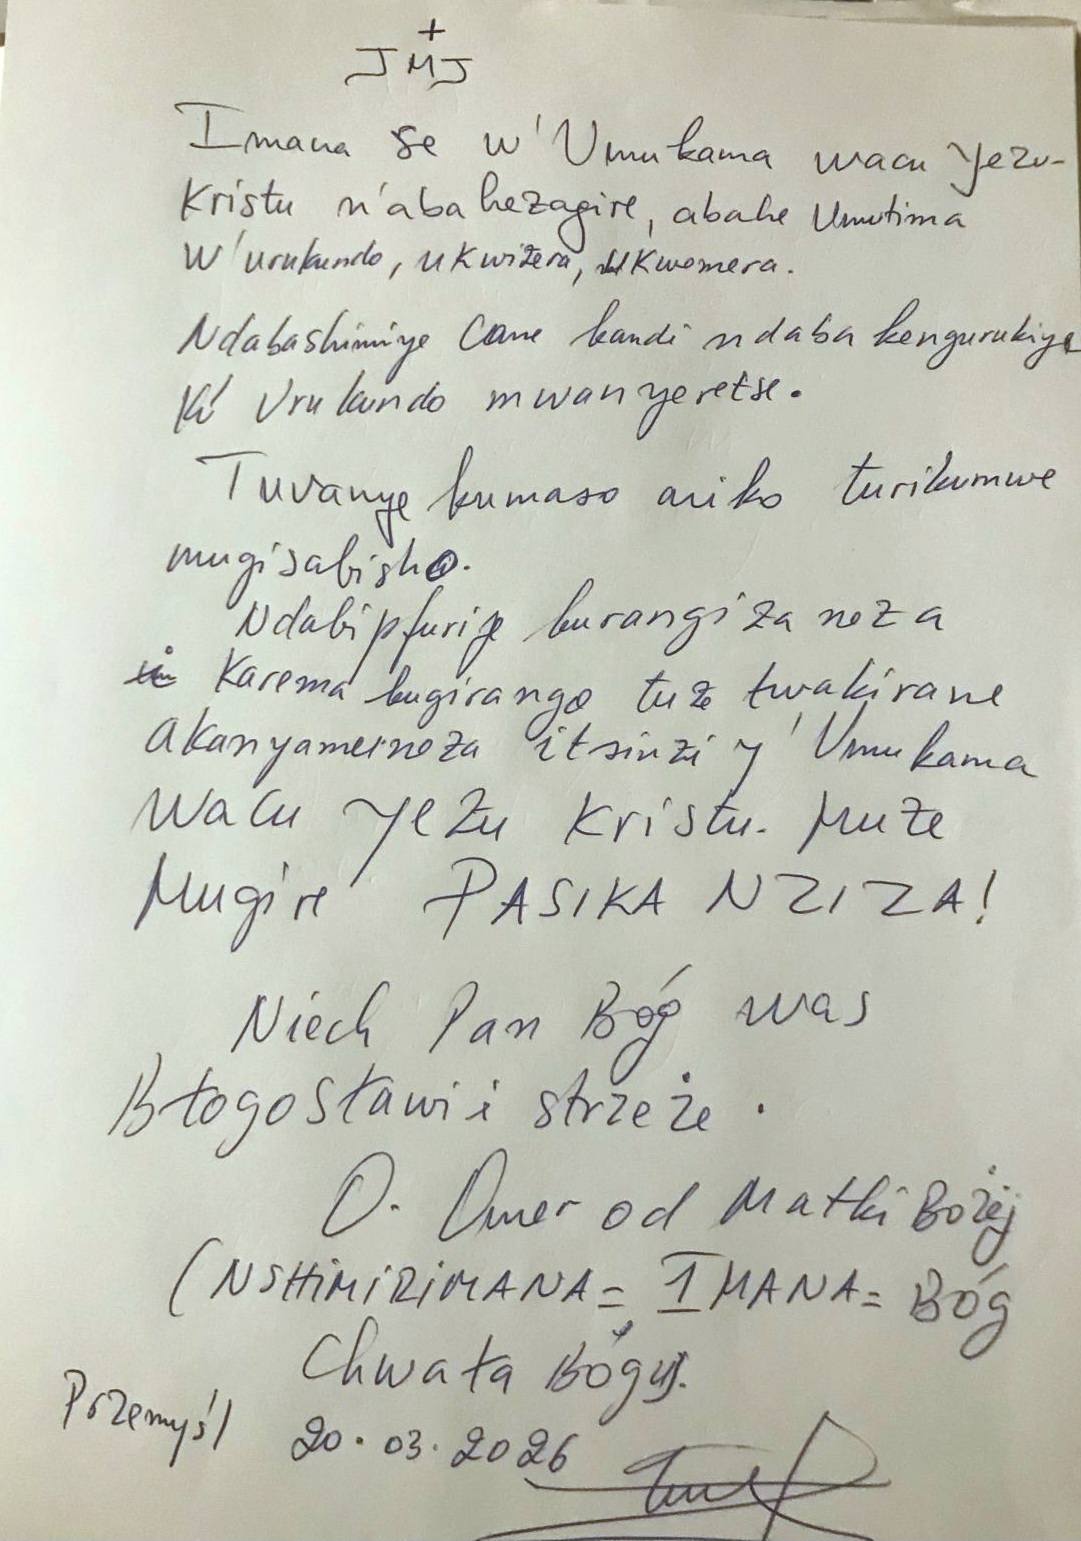 +
JMJ
Imana se w'Umukama wacu Yezu-
Kristu n'abahezagire, abahe Umutima
w'urukundo, ukwizera, ukwemera.
Ndabashimiye Cane kandi ndabakengurukiye
Ku' Urukundo mwanyeretse.
Tuvanye kumaso ariko turikumwe
mugisabisho.
Ndabipfurije kurangiza neza
Karema kugirango tuze twakirane
akanyamuneza itsinzi y'Umukama
wacu Yezu Kristu. Muze
Mugire PASIKA NZIZA!
Niech Pan Bóg was
Błogosławi i strzeże.
O. Omer od Matki Bożej
(NSHIMIRIMANA = IMANA = Bóg
Chwała Bogu).
Przemyśl 20.03.2026